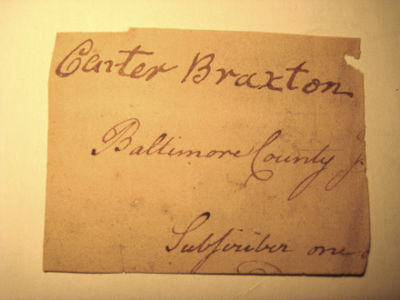 Carter Braxton
Baltimore County
Subscriber one